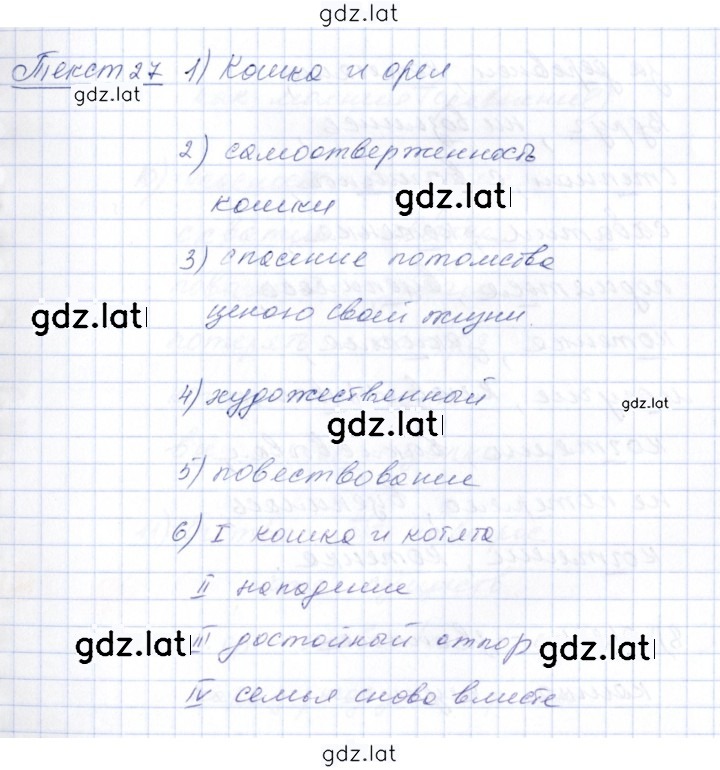 gdz.lat
Текст 27 1) Кошка и орел
gdz.lat
2) самоотверженность
кошки gdz.lat
3) спасение потомства
gdz.lat ценою своей жизни.
4) художественный gdz.lat
gdz.lat
5) повествование
6) I кошка и котята
II нападение
gdz.lat III достойный отпор gdz.lat
IV семья снова вместе
gdz.lat